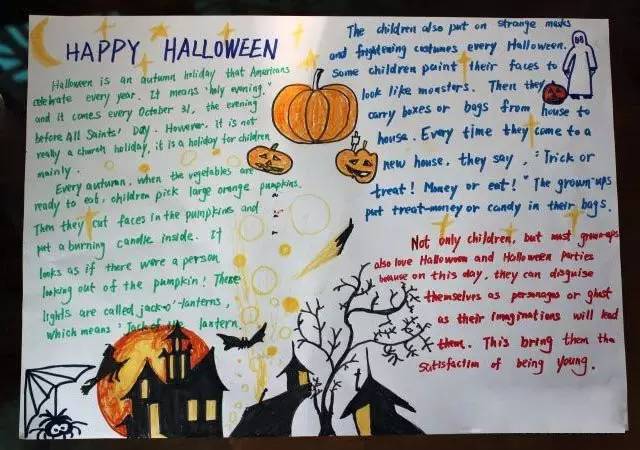 HAPPY HALLOWEEN
Halloween is an autumn holiday that Americans
celebrate every year. It means "holy evening,"
and it comes every October 31, the evening
before All Saints' Day. However, it is not
really a church holiday, it is a holiday for children
mainly.
Every autumn, when the vegetables are
ready to eat, children pick large orange pumpkins.
Then they cut faces in the pumpkins and
put a burning candle inside. It
looks as if there were a person
looking out of the pumpkin! These
lights are called jack-o'-lanterns,
which means "Jack of the lantern.
The children also put on strange masks
and frightening costumes every Halloween.
Some children paint their faces to
look like monsters. Then they
carry boxes or bags from house to
house. Every time they come to a
new house, they say, "Trick or
treat! Money or eat!" The grown-ups
put treat-money or candy in their bags.
Not only children, but most grown-ups
also love Halloween and Halloween parties
because on this day, they can disguise
themselves as personages or ghost
as their imaginations will lead
them. This bring them the
satisfaction of being young.